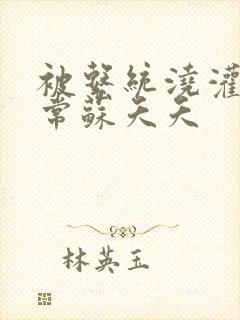 被系統澆灌
常蘇天天
林英玉